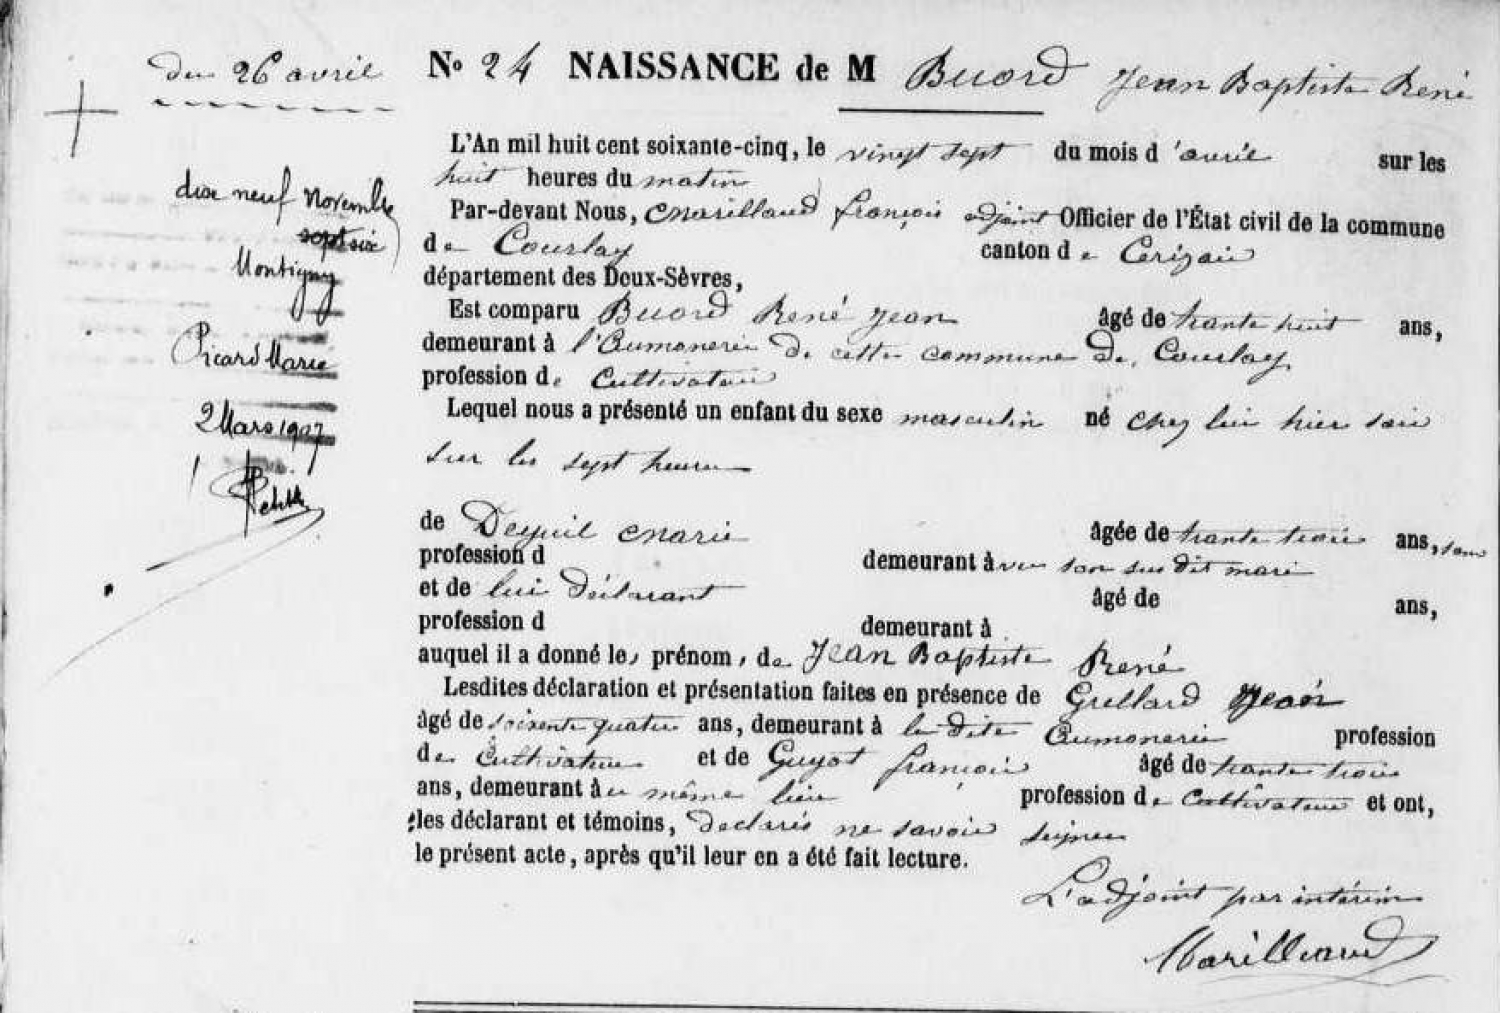 du 26 avril
dix neuf Novembre
Montigny
Picard Marie
2 Mars 1907
N° 24 NAISSANCE de M Buord Jean Baptiste René
L'An mil huit cent soixante-cinq, le vingt sept du mois d'avril sur les
huit heures du matin
Par-devant Nous, Marillaud françois adjoint Officier de l'État civil de la commune
de Courlay canton de Cerizais
département des Deux-Sèvres,
Est comparu Buord René Jean âgé de trente huit ans,
demeurant à l'Aumonerie de cette commune de Courlay
profession de Cultivateur
Lequel nous a présenté un enfant du sexe masculin né chez lui hier soir
sur les sept heures
de Deguil Marie âgée de trente trois ans, sans
profession d demeurant à vec son sus dit mari
et de lui Déclarant âgé de ans,
profession d demeurant à
auquel il a donné les prénoms de Jean Baptiste René
Lesdites déclaration et présentation faites en présence de Grellard Jean
âgé de soixente quatre ans, demeurant à la dite Aumonerie profession
de Cultivateur et de Guyot françois âgé de trente trois
ans, demeurant à u même lieu profession de Cultivateur et ont,
les déclarant et témoins, declarés ne savoir signer
le présent acte, après qu'il leur en a été fait lecture.
L'adjoint par intérim
Marillaud